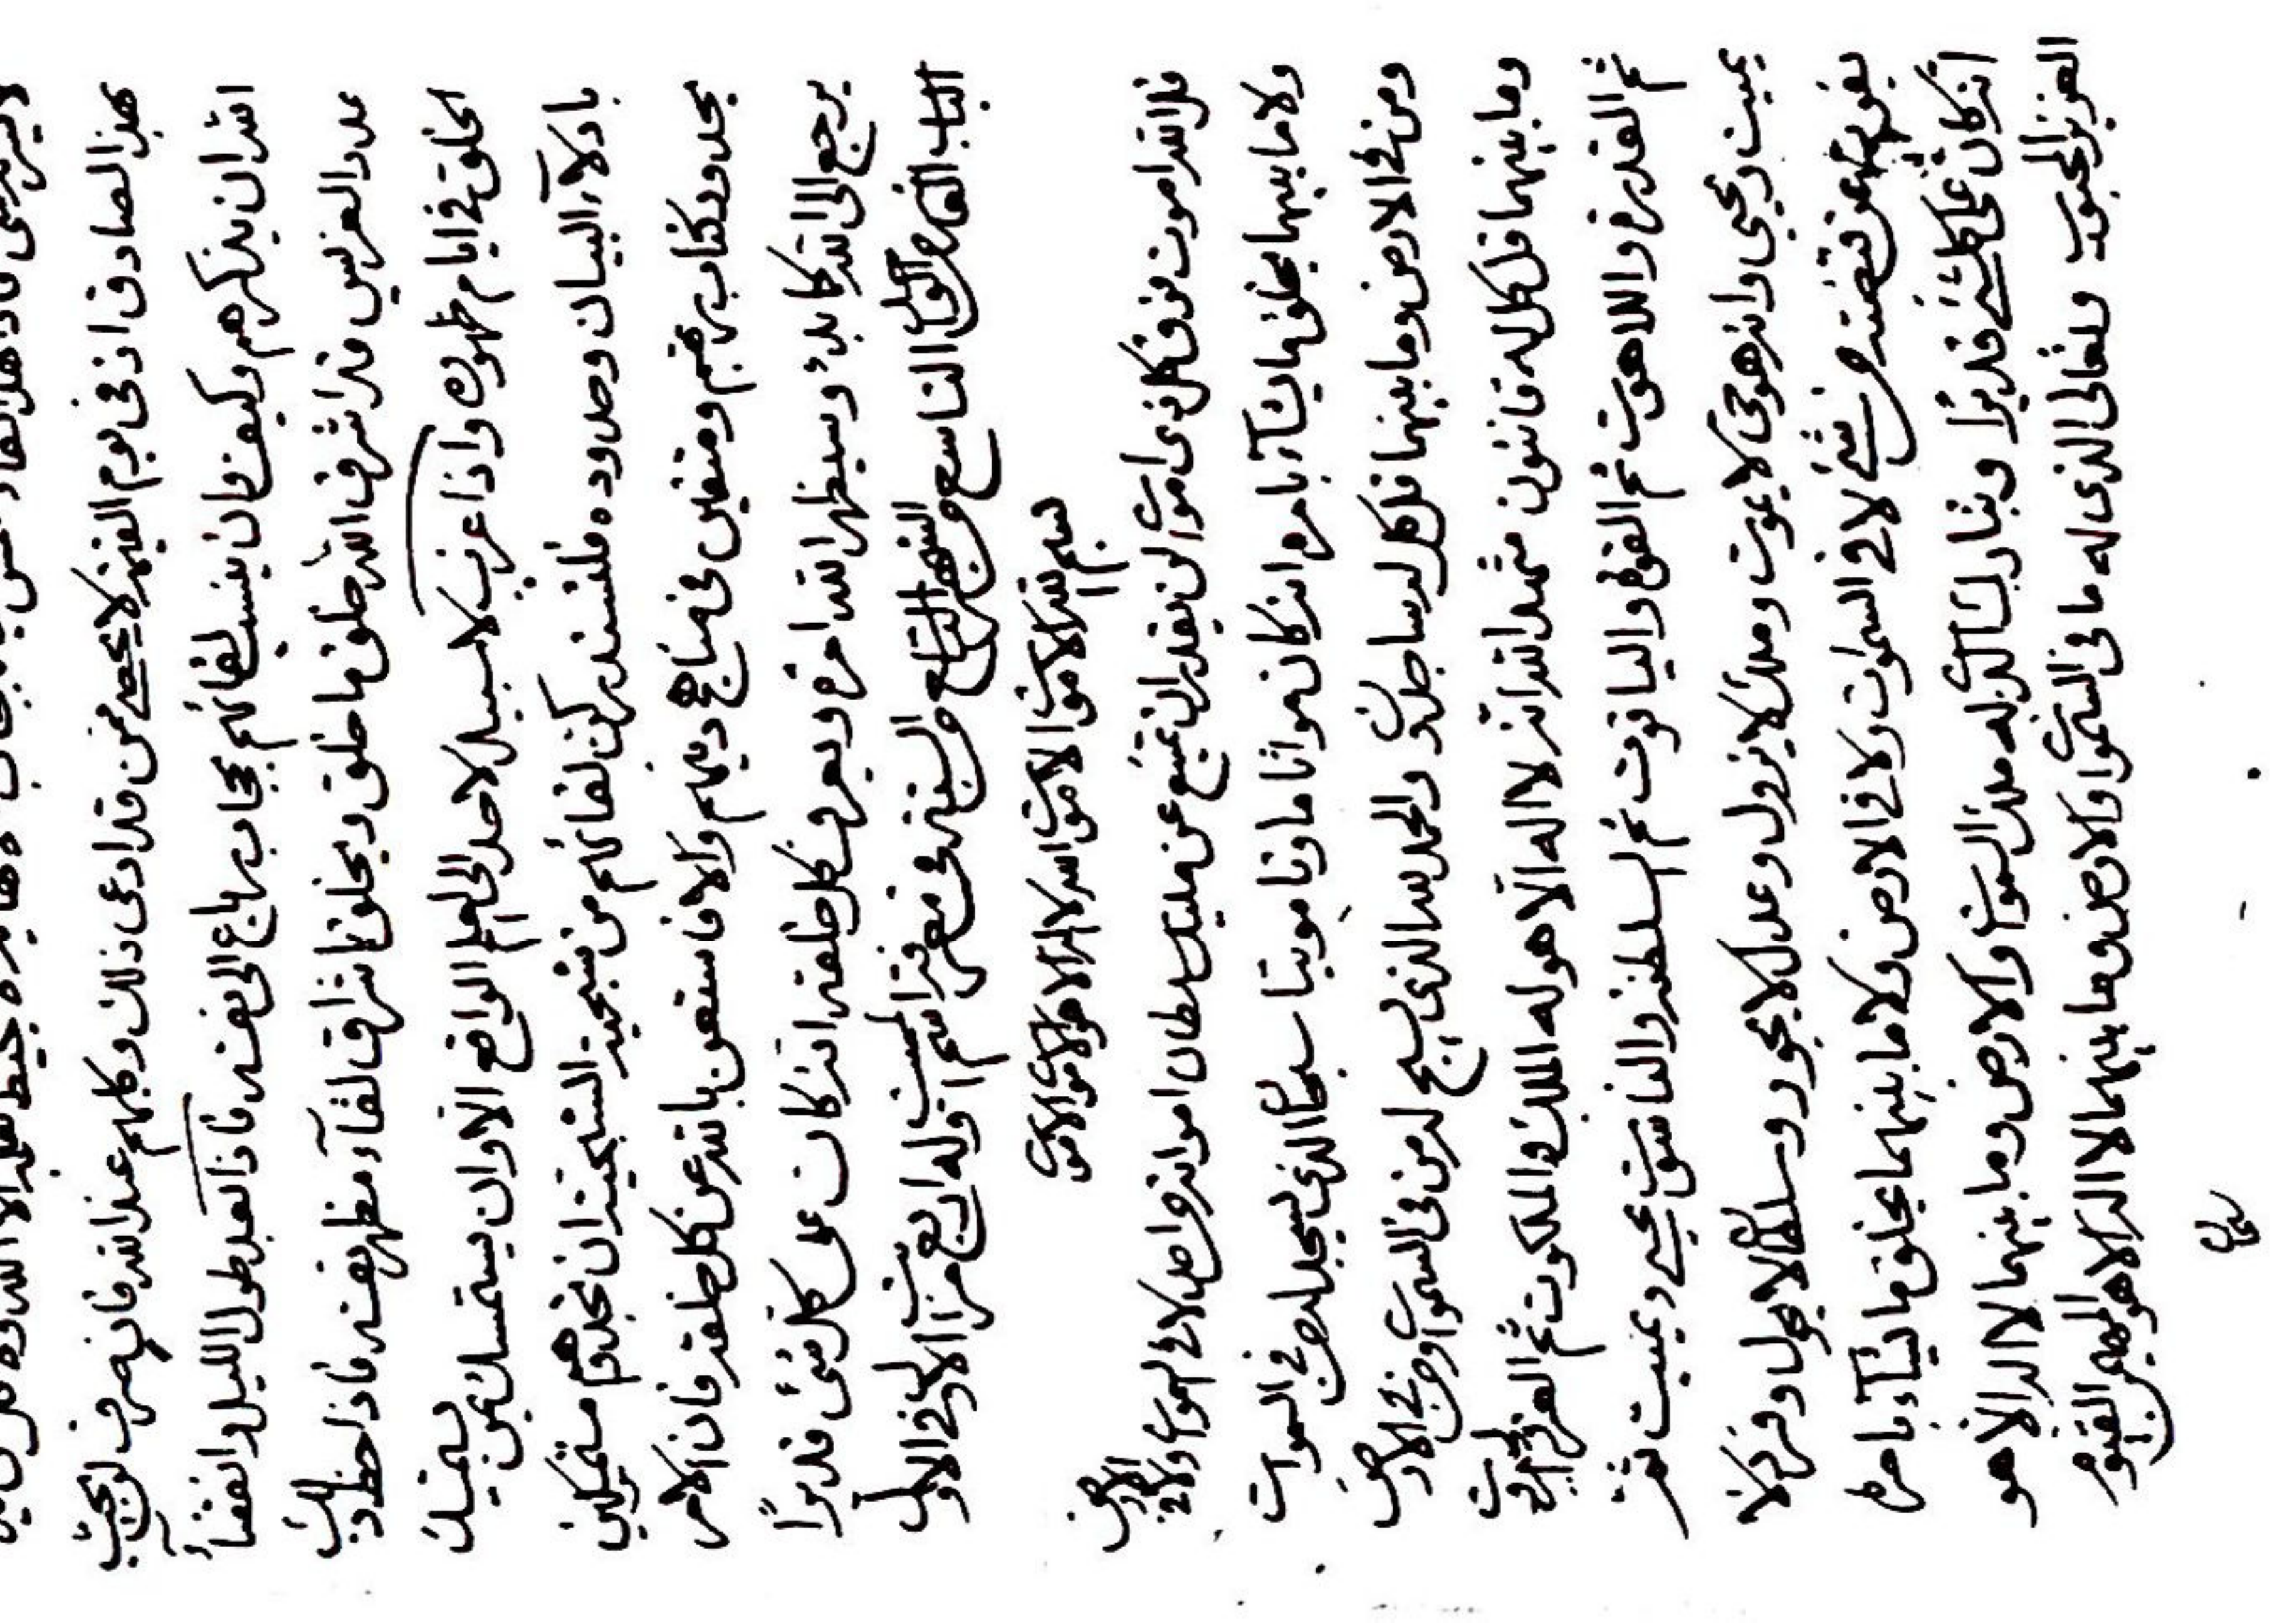 بهذا الصادق اذ فى يوم القيمة لا يحصى من قد ادعى ذلك وكلهم عند الله فانيه صرف لو يحب
الله ان يذكرهم وكيف وان ينسب لقائهم بحجاب راجع الى نفسه فاذا لعبد طول الليل وانقضاء
عدد العز بين قد اشرف الله خلق ما خلق ويخلق باشراق لقاء مظهر نفسه فاذا حظ ذلك
الخلق فى ايام ظهوره واذا غرب لا سبيل لاحد الى العلم الواقع الا وان يستمسك بمن يستمسك
بادلاء البيان وحدوده فلتستدركن لقائهم من شبحية الشبحية ان تجدوهم مستمسكين
بحدود كتاب ربهم ومتقين فى مناهج دينهم والا فاستغن بالله عن كل خلقه فان الامر
يرجع الى الله كما بدء وسيظهر الله امره ويعرف كل خلقه انه كان على كل شىء قديرا
الباب التاسع من الشهر التاسع من السنة فى معرفة اسم المميت وله اربع مراتب الاول فى الاول
بسم الله الاموت الاموت
الله لا اله الا هو الاموت الاموت
قل الله اموت فوق كل ذى اموات لن يقدر ان يمتنع عن مليك سلطان امواته من احد لا فى السموات ولا فى الارض
ولا ما بينهما يخلق ما يشاء بامره انه كان مواتا ماوتا مويتا سبحان الذى يسجد له من فى السموات
ومن فى الارض وما بينهما قل كل له ساجدون والحمد لله الذى يسبح له من فى السموات ومن فى الارض
وما بينهما قل كل له قانتون شهد الله انه لا اله الا هو له الملك والملكوت ثم العز والجبروت
ثم القدرة واللاهوت ثم القوة والياقوت ثم السلطنة والناسوت يحيى ويميت ثم
يميت ويحيى وانه هو حى لا يموت وملك لا يزول وعدل لا يجور وسلطان لا يحول وفرد لا
يفوت عن قبضته من شىء لا فى السموات ولا فى الارض ولا ما بينهما يخلق ما يشاء بامره
انه كان على كل شىء قديرا وتبارك الذى له ملك السموات والارض وما بينهما لا اله الا هو
العزيز المحبوب وتعالى الذى له ما فى السموات والارض وما بينهما لا اله الا هو المهيمن القيوم
سبحان